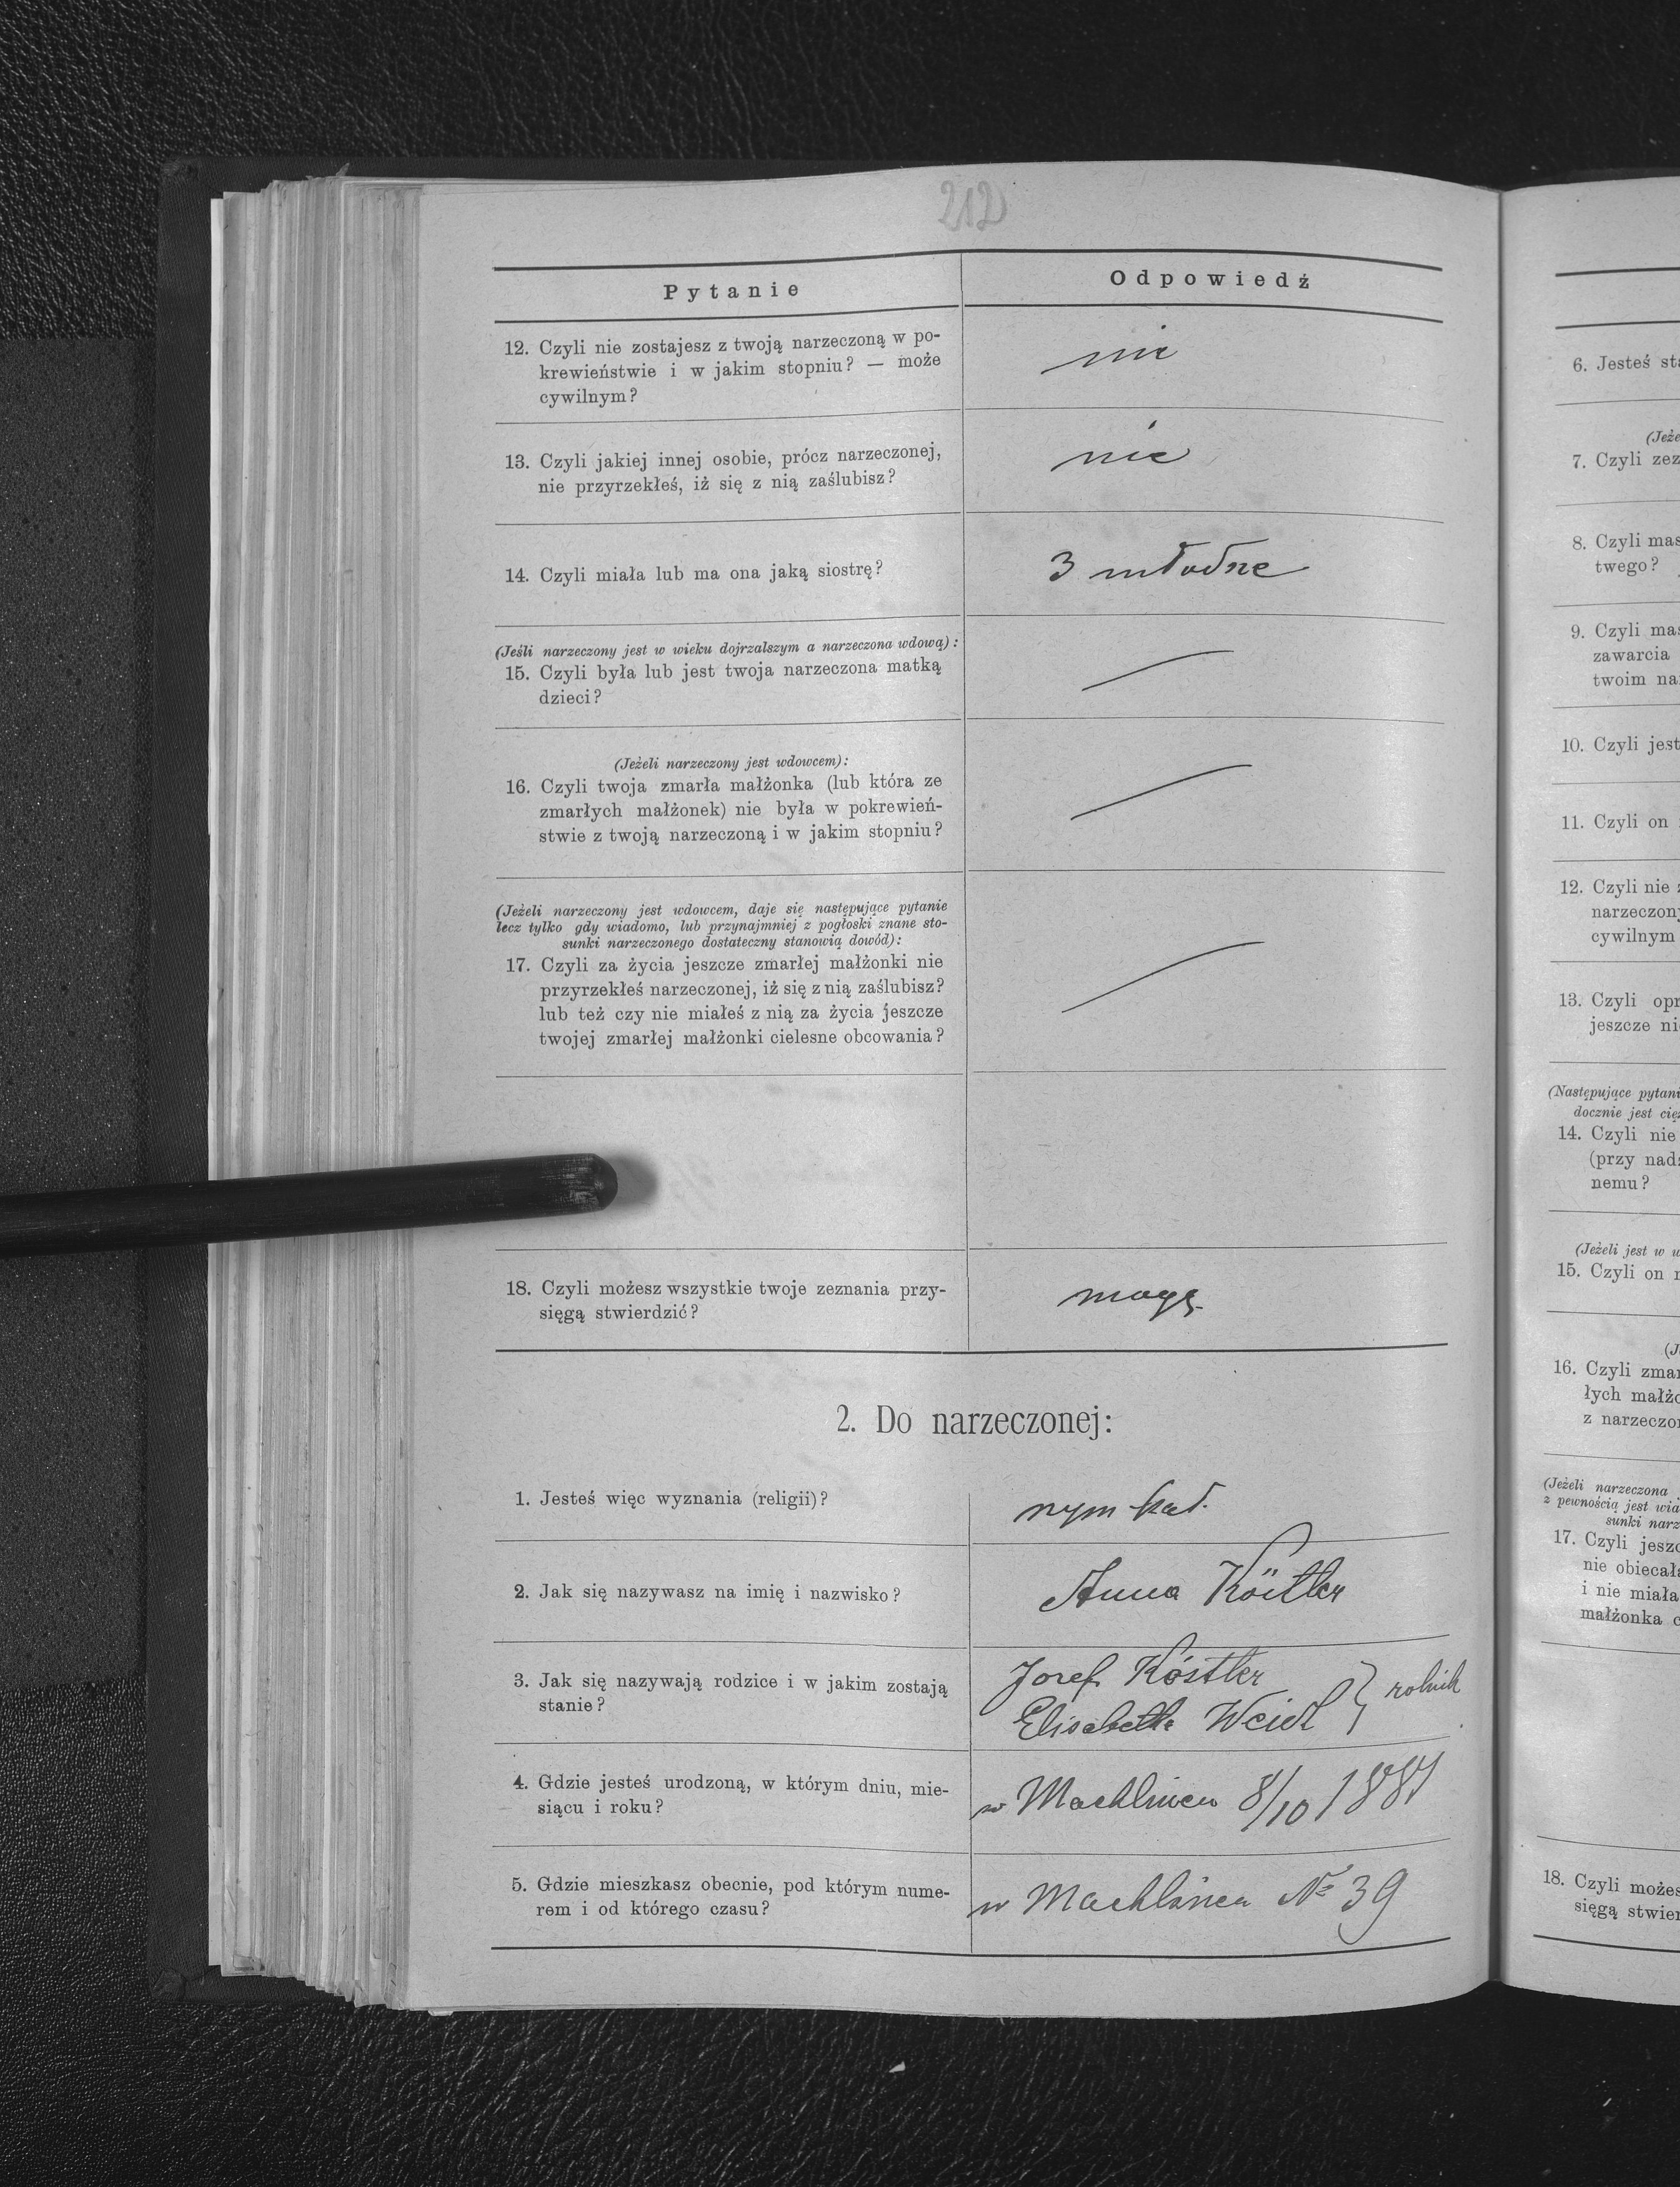 212
Pytanie
Odpowiedź
12. Czyli nie zostajesz z twoją narzeczoną w po-
krewieństwie i w jakim stopniu? — może
cywilnym?
nie
13. Czyli jakiej innej osobie, prócz narzeczonej,
nie przyrzekłeś, iż się z nią zaślubisz?
nie
14. Czyli miała lub ma ona jaką siostrę?
3 młodsze
(Jeśli narzeczony jest w wieku dojrzalszym a narzeczona wdową):
15. Czyli była lub jest twoja narzeczona matką
dzieci?
(Jeżeli narzeczony jest wdowcem):
16. Czyli twoja zmarła małżonka (lub która ze
zmarłych małżonek) nie była w pokrewień-
stwie z twoją narzeczoną i w jakim stopniu?
(Jeżeli narzeczony jest wdowcem, daje się następujące pytanie
lecz tylko gdy wiadomo, lub przynajmniej z pogłoski znane sto-
sunki narzeczonego dostateczny stanowią dowód):
17. Czyli za życia jeszcze zmarłej małżonki nie
przyrzekłeś narzeczonej, iż się z nią zaślubisz?
lub też czy nie miałeś z nią za życia jeszcze
twojej zmarłej małżonki cielesne obcowania?
18. Czyli możesz wszystkie twoje zeznania przy-
sięgą stwierdzić?
mogę
2. Do narzeczonej:
1. Jesteś więc wyznania (religii)?
rzym kat.
2. Jak się nazywasz na imię i nazwisko?
Anna Köstler
3. Jak się nazywają rodzice i w jakim zostają
stanie?
Josef Köstler
Elisabetha Weidl } rolnik
4. Gdzie jesteś urodzoną, w którym dniu, mie-
siącu i roku?
w Machlincu 8/10 1887
5. Gdzie mieszkasz obecnie, pod którym nume-
rem i od którego czasu?
w Machlincu № 39
6. Jesteś
(Jeże
7. Czyli zez
8. Czyli mas
twego?
9. Czyli mas
zawarcia
twoim na
10. Czyli jest
11. Czyli on
12. Czyli nie
narzeczony
cywilnym
13. Czyli opr
jeszcze ni
(Następujące pytani
docznie jest cię
14. Czyli nie
(przy nad
nemu?
(Jeżeli jest w w
15. Czyli on
(J
16. Czyli zmar
łych małżo
z narzeczo
(Jeżeli narzeczona
z pewnością jest wia
sunki narz
17. Czyli jeszc
nie obiecała
i nie miała
małżonka c
18. Czyli możes
sięgą stwier